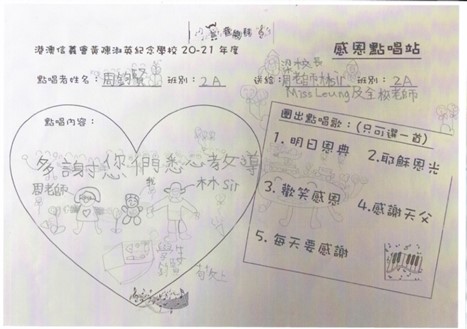 港澳信義會黃陳淑英紀念學校 20-21 年度
感恩點唱站
梁校長
點唱者姓名：周鈞賢 班別：2A
送給：周老師、林sir 班別：2A
Miss Leung及全校老師
點唱內容：
多謝您們悉心教導
周老師
我
林sir
圈出點唱歌：(只可選一首)
1. 明日恩典
2. 耶穌恩光
3. 歡笑感恩
4. 感謝天父
5. 每天要感謝